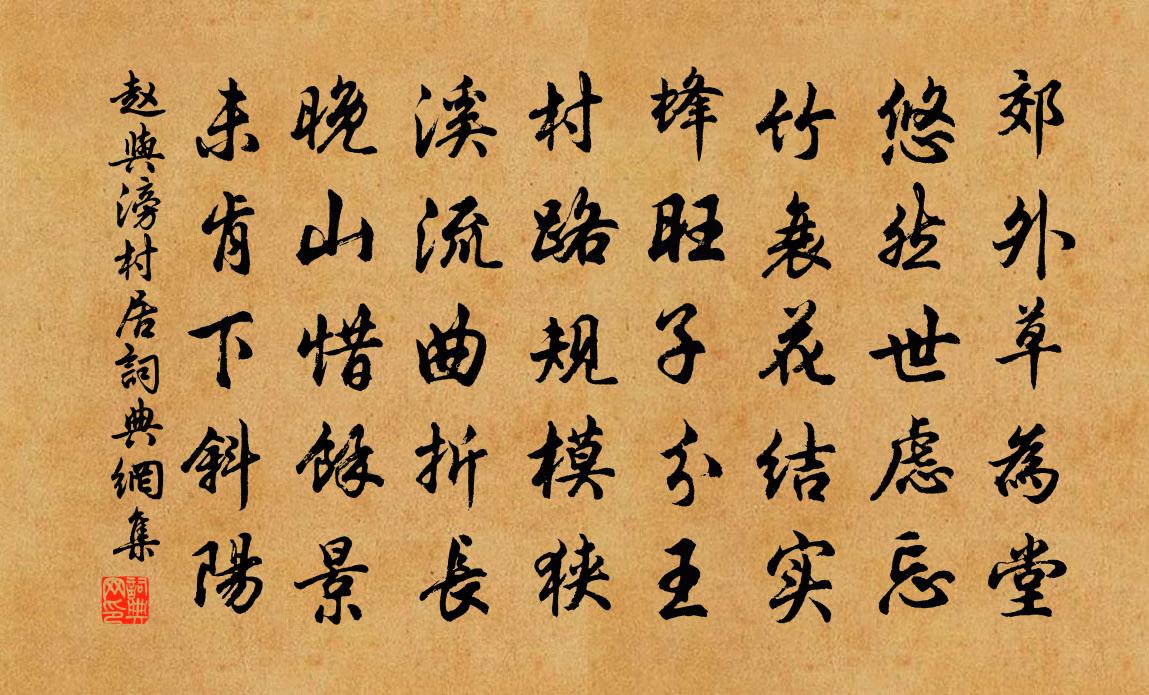 郊外草為堂
悠然世慮忘
竹衰花结实
蜂旺子分王
村路规模狹
溪流曲折長
晚山惜餘景
未肯下斜陽
赵與滂村居詞典網集
詞典网印